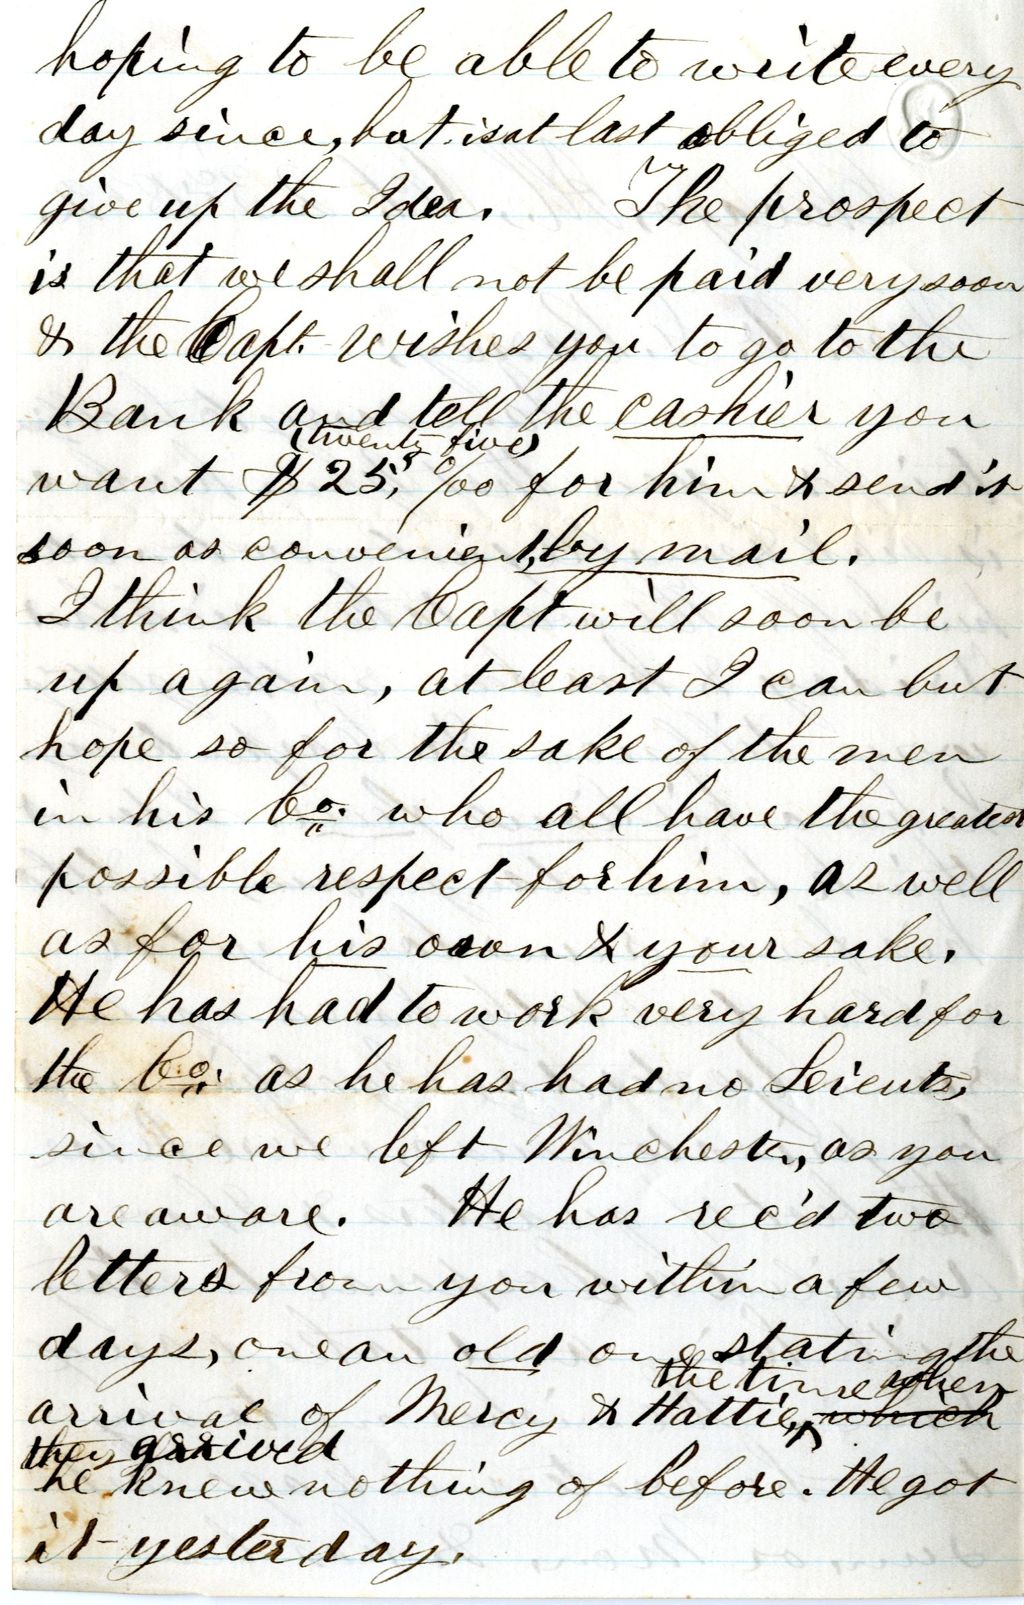 hoping to be able to write every
day since, but is at last obliged to
give up the Idea. The prospect
is that we shall not be paid very soon
& the Capt. wishes you to go to the
Bank and tell the cashier you
(twenty five)
want $25, 0/00 for him & send it
soon as convenient, by mail.
I think the Capt will soon be
up again, at least I can but
hope so for the sake of the men
in his Co. who all have the greatest
possible respect for him, as well
as for his own & your sake.
He has had to work very hard for
the Co. as he has had no Leieuts,
since we left Winchester, as you
are aware. He has rec'd two
letters from you within a few
days, one an old one stating the
the time when
arrival of Mercy & Hattie, which
they arrived
he knew nothing of before. He got
it yesterday.